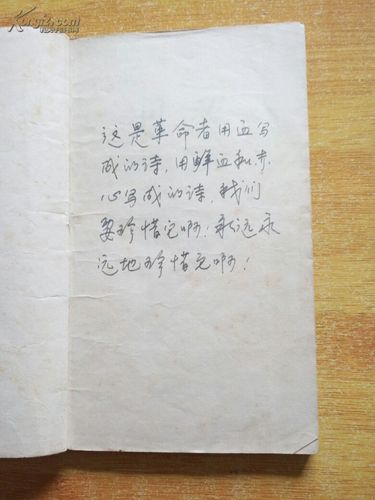 Kongfz.com
这是革命者用血写
成的诗，用鲜血和赤
心写成的诗，我们
要珍惜它啊！永远永
远地珍惜它啊！